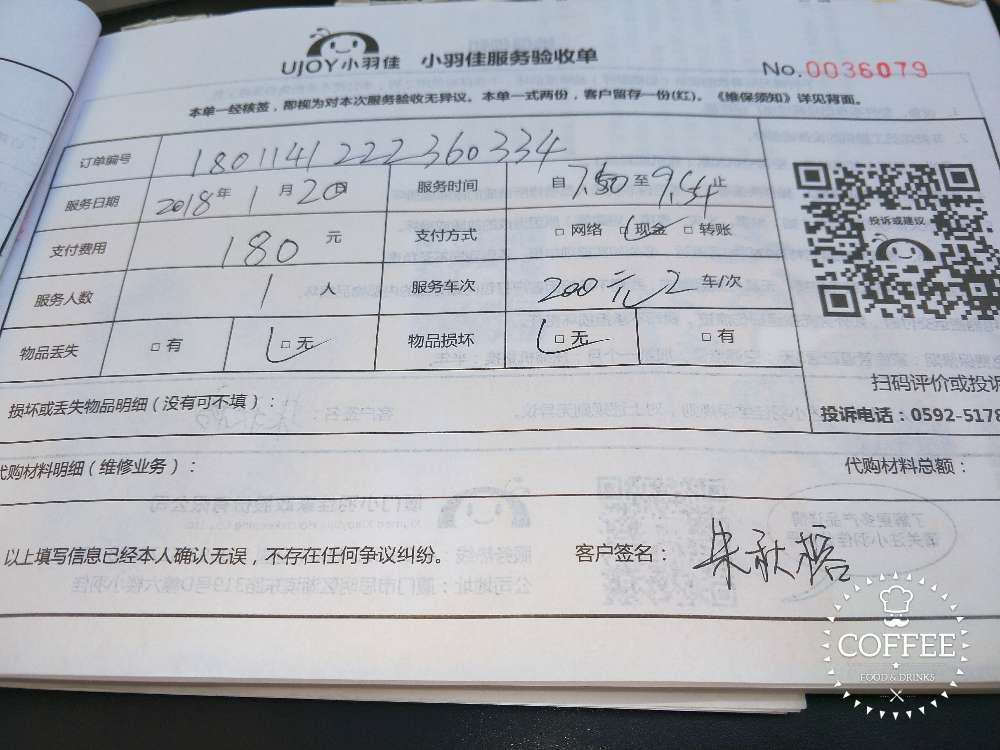 UJOY小羽佳 小羽佳服务验收单
No.0036079
本单一经核签，即视为对本次服务验收无异议。本单一式两份，客户留存一份(红)。《维保须知》详见背面。
订单编号 1801141222360334
服务日期 2018年1月20日 服务时间 自7.50至9.54止
支付费用 180元 支付方式 □网络 □现金 □转账
服务人数 1人 服务车次 200元2车/次
物品丢失 □有 □无 物品损坏 □无 □有
投诉或建议
扫码评价或投诉
损坏或丢失物品明细（没有可不填）：
投诉电话：0592-5178
代购材料明细（维修业务）： 代购材料总额：
以上填写信息已经本人确认无误，不存在任何争议纠纷。 客户签名：朱秋榕
COFFEE
FOOD & DRINKS